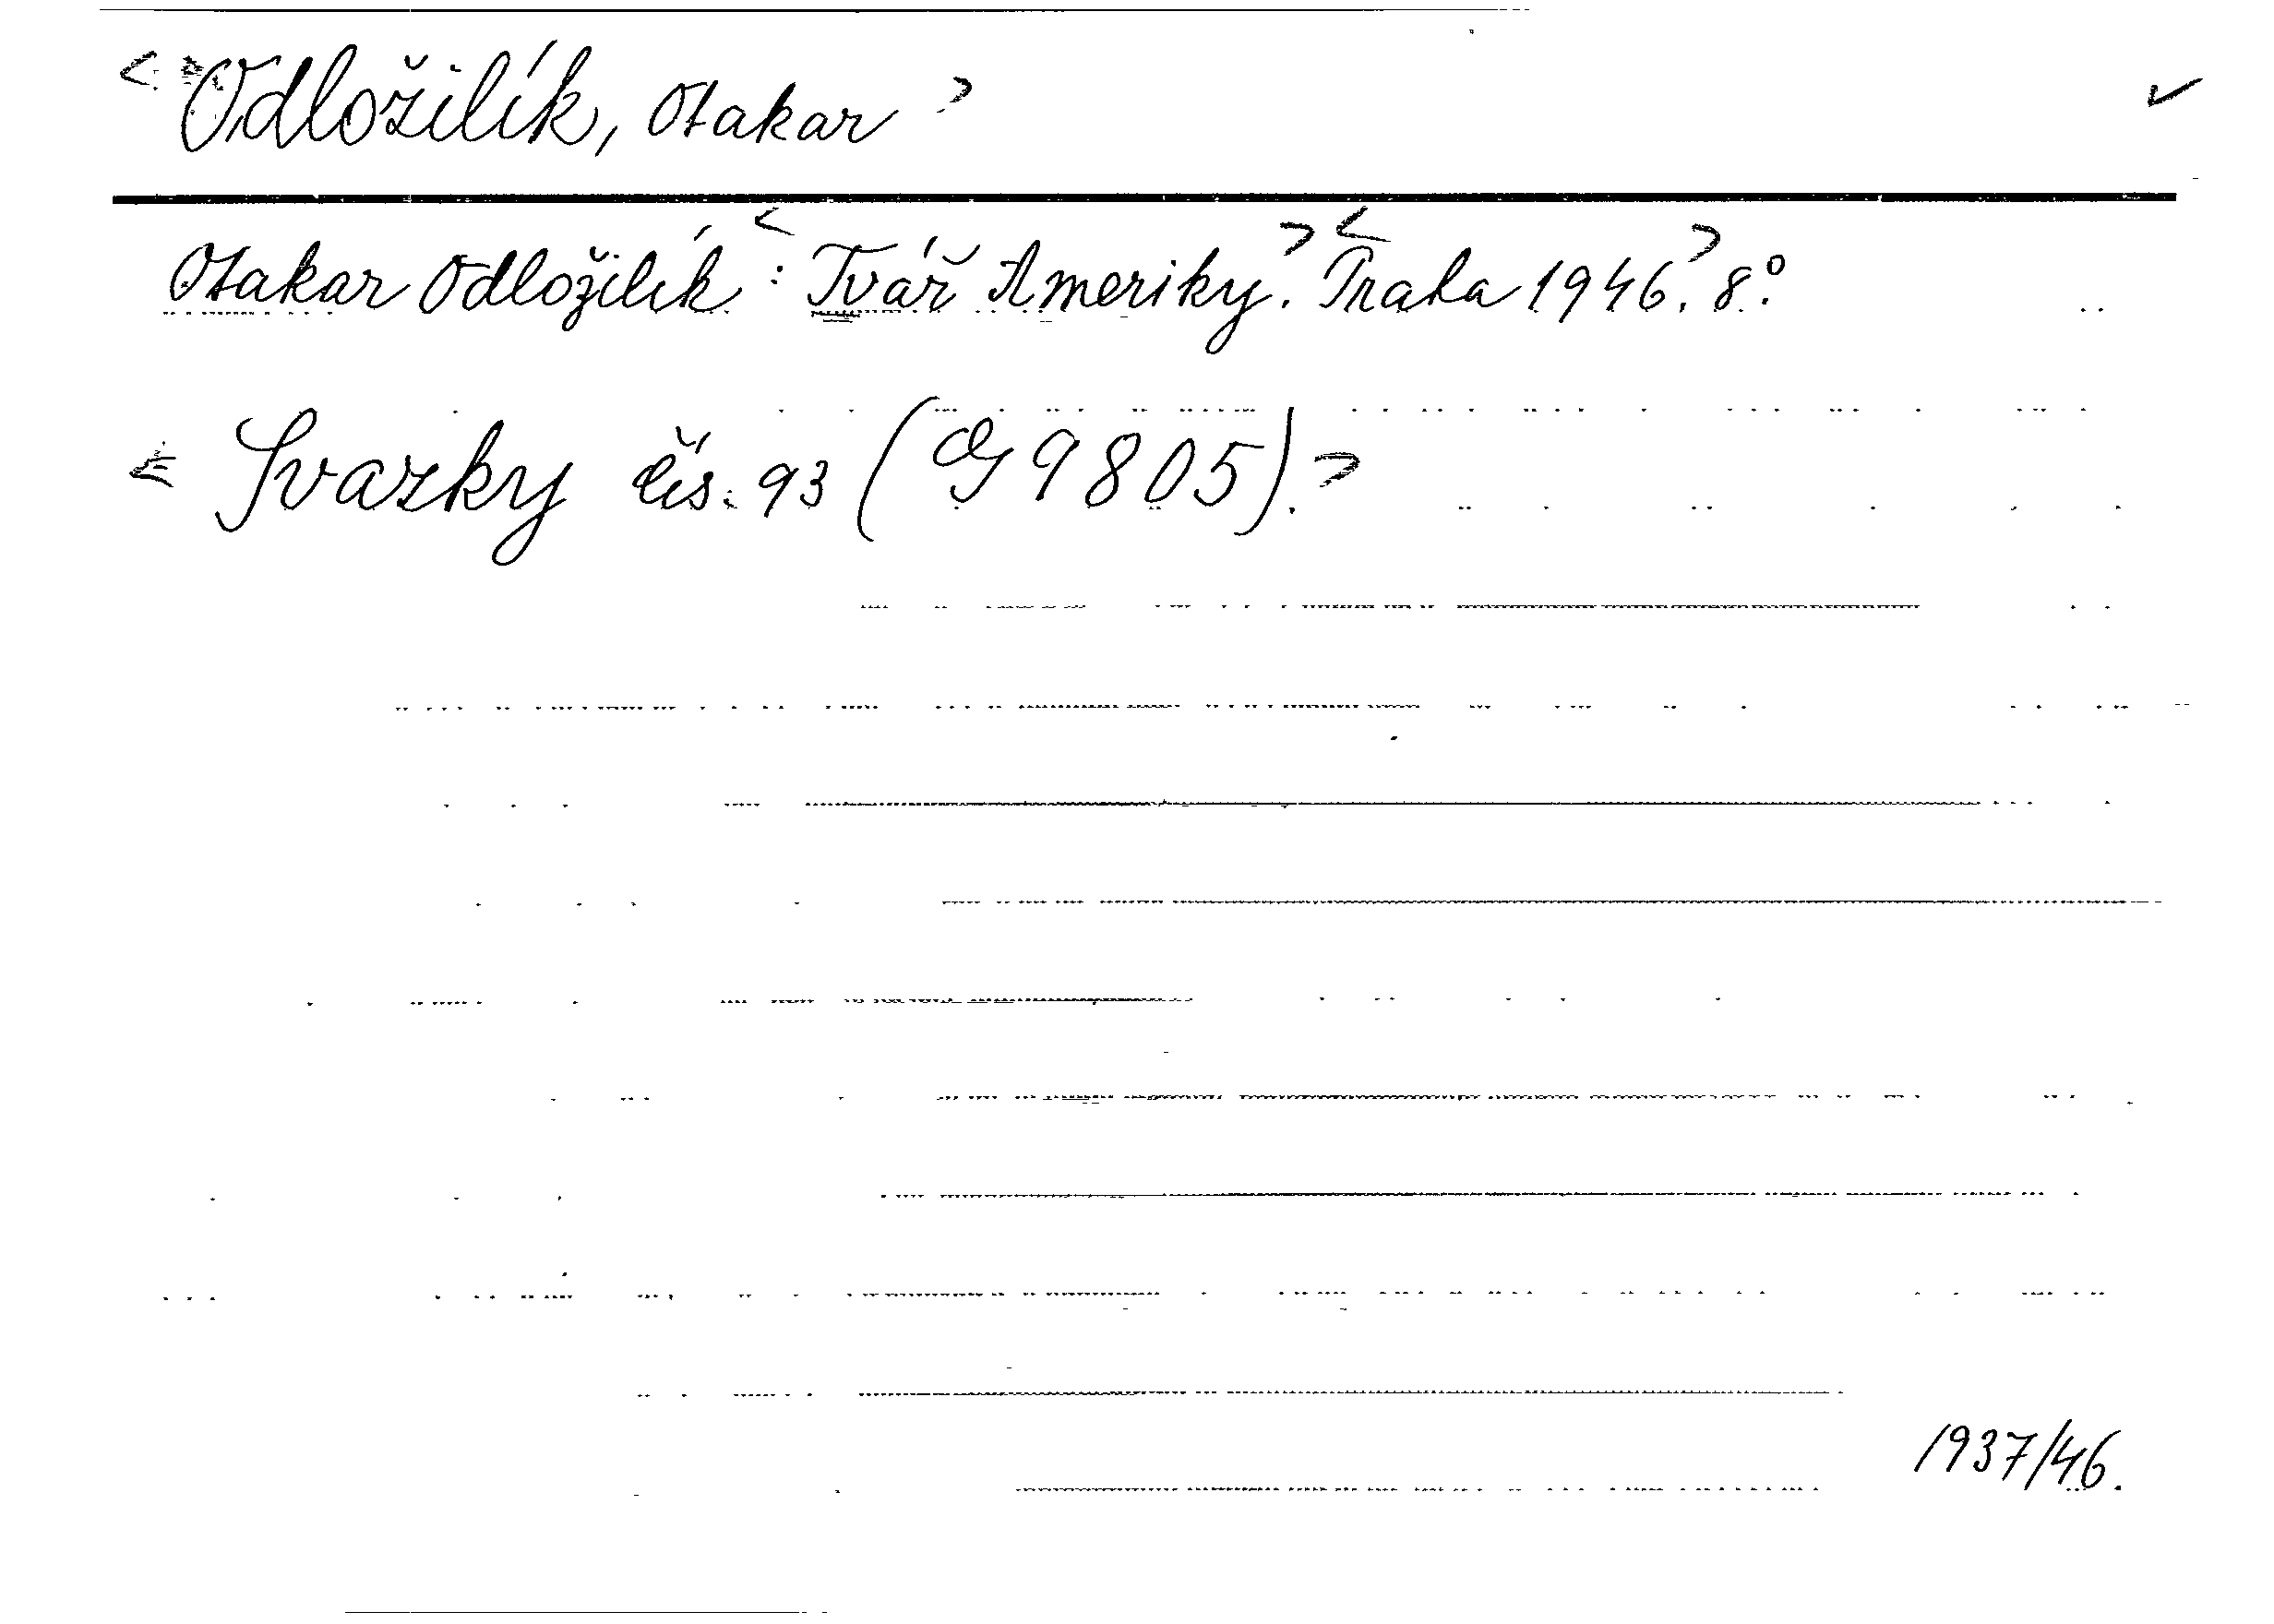 < Odložilík, Otakar > ✓
Otakar Odložilík: < Tvář Ameriky. > < Praha 1946. > 8°.
< Svazky čís. 93 (G 9805). >
1937/46.